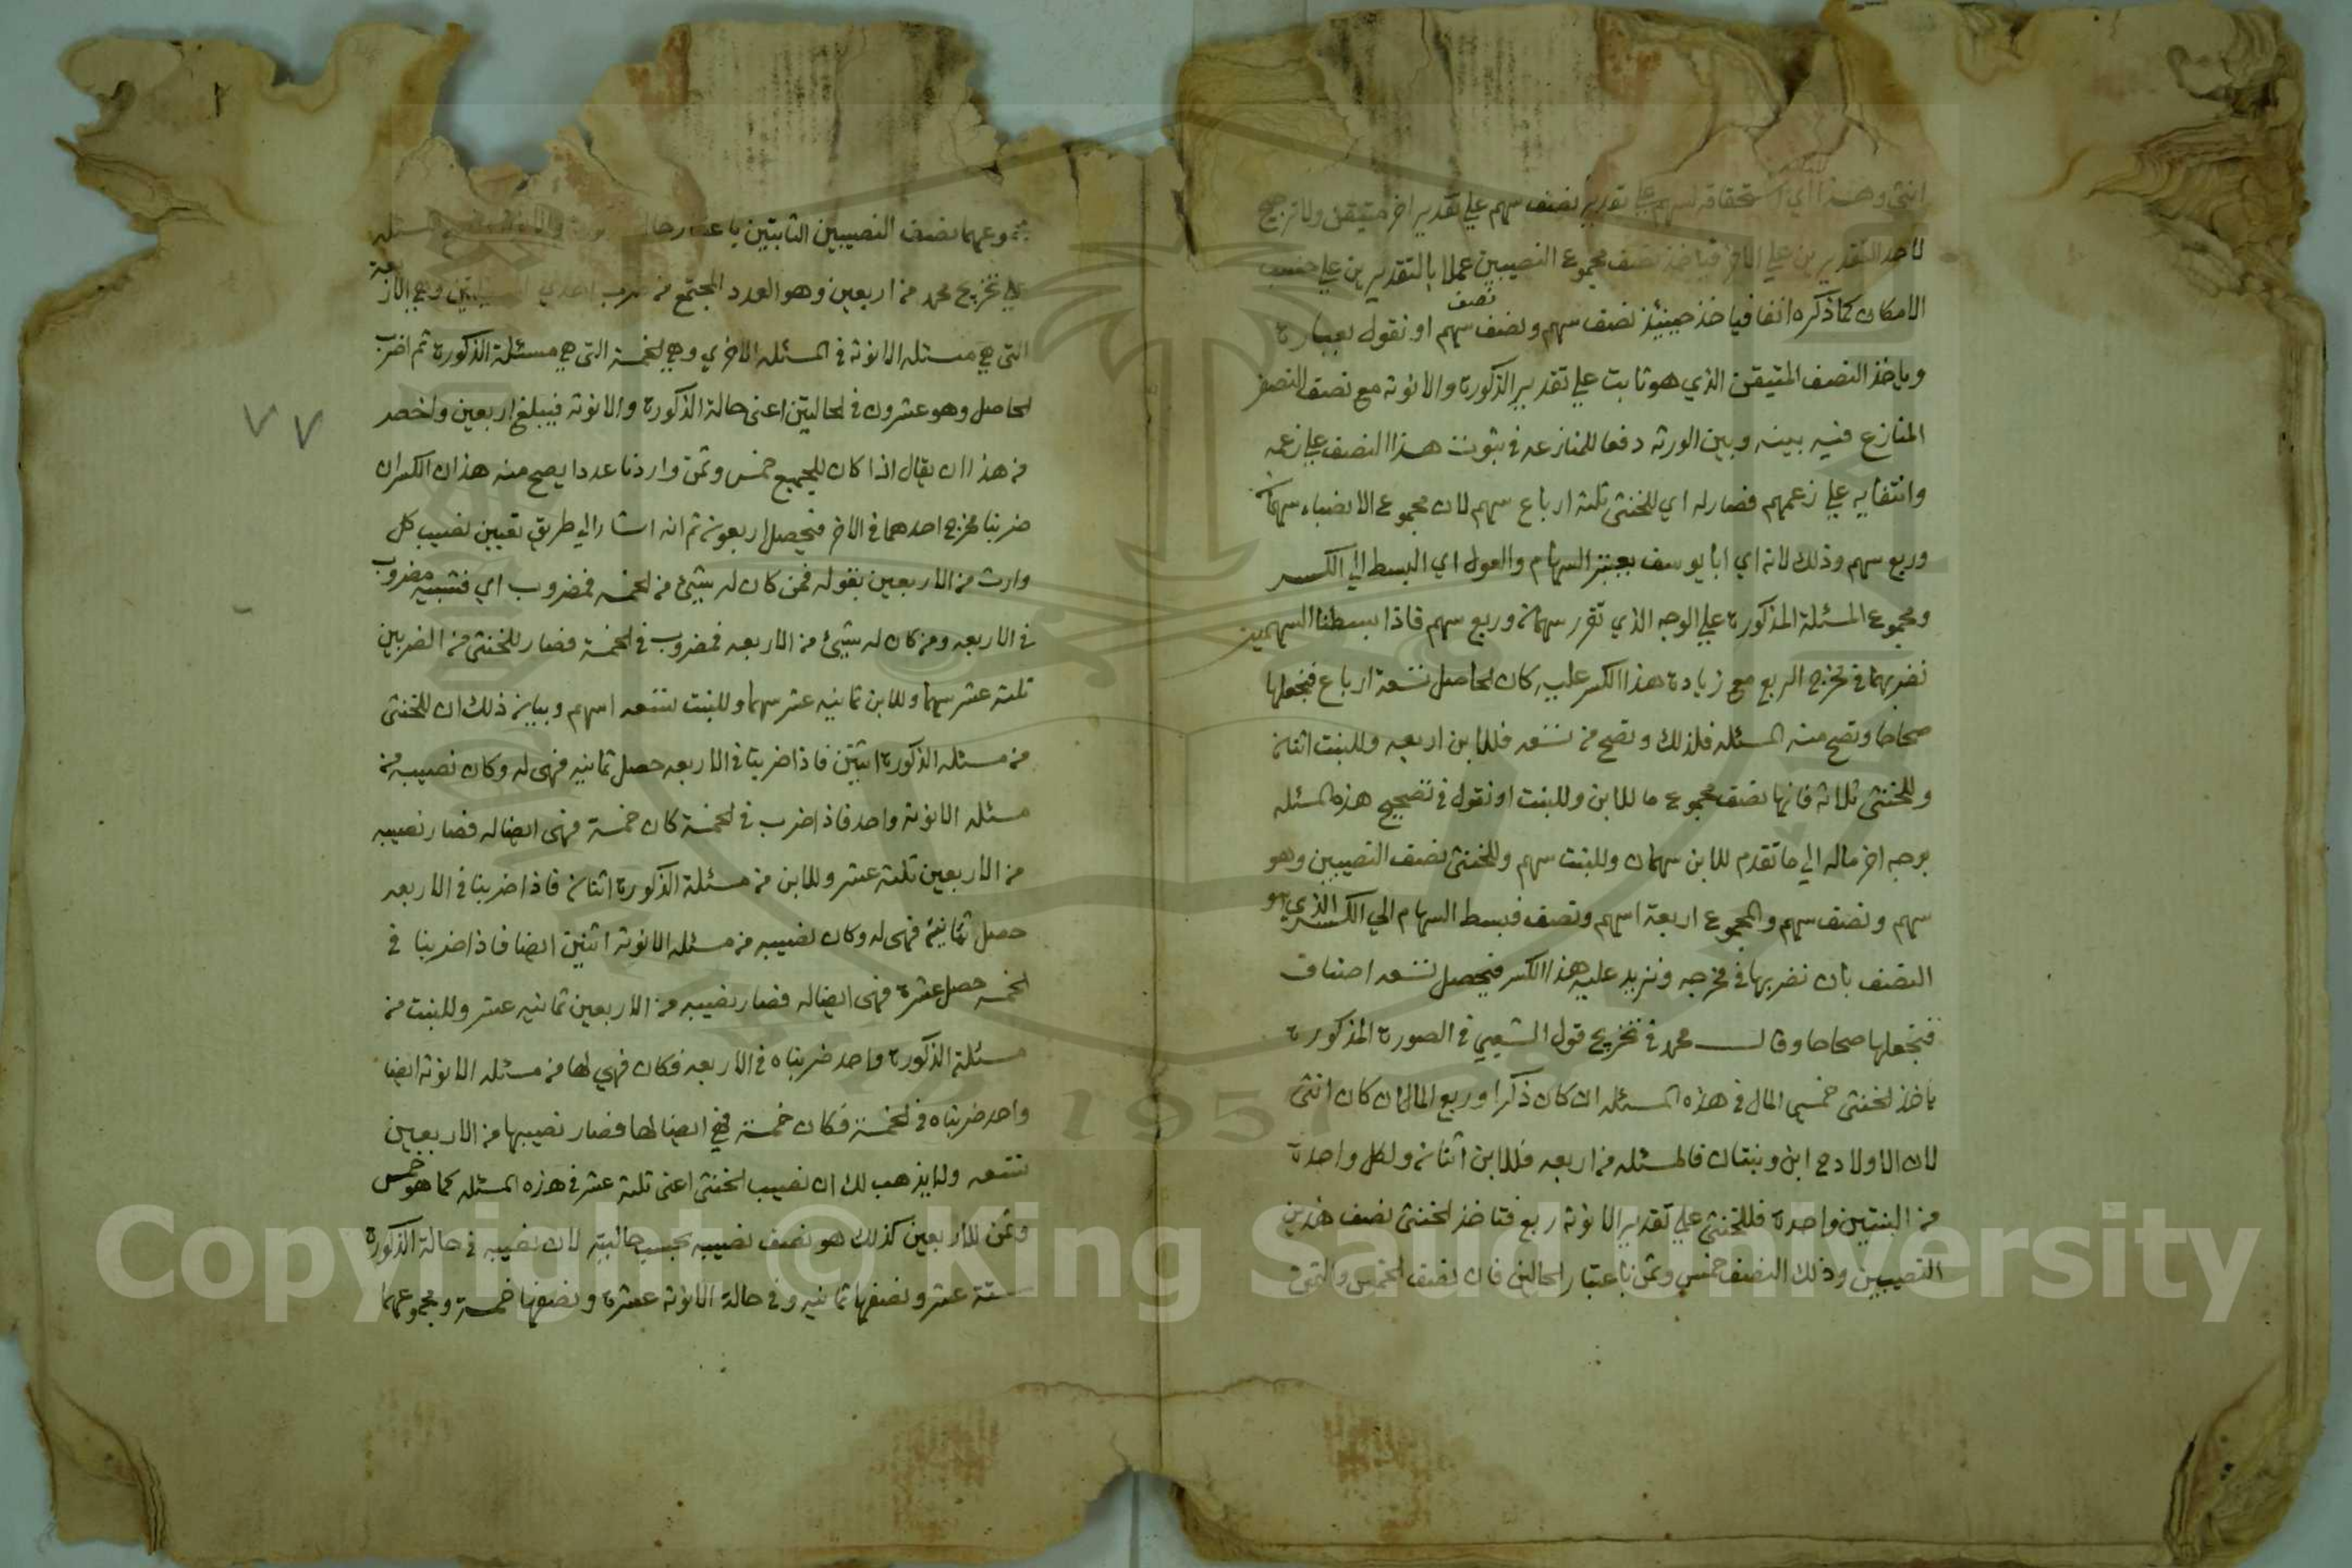 انثي وهذا اي استحقاقه لسهم علي تقدير نصف سهم علي تقدير اخر متيقن ولا ترجيح
لاحد التقديرين علي الاخر فياخذ نصف مجموع النصيبين عملا بالتقديرين علي حسب
الامكان كما ذكره انفا فياخذ حينئذ نصف سهم ونصف نصف سهم او نقول بعبارة
وياخذ النصف المتيقن الذي هو ثابت علي تقدير الذكورة والانوثه مع نصف النصف
المنازع فيه بينه وبين الورثه دفعا للمنازعه في ثبوت هذا النصف علي زعمه
وانتفايه علي زعمهم فصار له اي للخنثي ثلثه ارباع سهم لان مجموع الانصباء سهمان
وربع سهم وذلك لانه اي ابا يوسف يعتبر السهام والعول اي البسط الي الكسر
ومجموع المسئلة المذكورة علي الوجه الذي تقرر سهمان وربع سهم فاذا بسطنا السهمين
نضربهما في مخرج الربع مع زيادة هذا الكسر عليه كان الحاصل تسعة ارباع فنجعلها
صحاحا وتصح منه المسئله فلذلك وتصح من تسعه فللابن اربعه وللبنت اثنان
وللخنثي ثلاثه فانها نصف مجموع ما للابن وللبنت او نقول في تصحيح هذه المسئله
بوجه اخر ماله الي ما تقدم للابن سهمان وللبنت سهم وللخنثي نصف النصيبين وهو
سهم ونصف سهم والمجموع اربعة اسهم ونصف فبسط السهام الي الكسر الذي هو
النصف بان نضربها في مخرجه ونزيد عليه هذا الكسر فيحصل تسعه اصناف
فنجعلها صحاحا وقال محمد في تخريج قول الشعبي في الصورة المذكورة
ياخذ الخنثي خمسي المال في هذه المسئله ان كان ذكرا وربع المال ان كان انثي
لان الاولاد ح ابن وبنتان فالمسئله من اربعه فللابن اثنان ولكل واحدة
من البنتين واحدة فللخنثي علي تقدير الانوثه ربع فتاخذ الخنثي نصف هذين
النصيبين وذلك النصف خمس وثمن باعتبار الحالين فان نصف الخمس والثمن
مجموعهما نصف النصيبين الثابتين باعتبار حال
علي تخريج محمد من اربعين وهو العدد المجتمع من ضرب احدي المسئلتين وهي الاربعة
التي هي مسئله الانوثه في المسئله الاخري وهي الخمسة التي هي مسئلة الذكورة ثم اضرب
الحاصل وهو عشرون في الحالتين اعني حالة الذكورة والانوثه فيبلغ اربعين واخصر
من هذا ان يقال اذا كان للجميع خمس وثمن واردنا عددا يصح منه هذان الكسران
ضربنا مخرج احدهما في الاخر فيحصل اربعون ثم انه اشار الي طريق تعيين نصيب كل
وارث من الاربعين بقوله فمن كان له شيئ من الخمسه فمضروب اي فنصيبه مضروب
في الاربعه ومن كان له شيئ من الاربعه فمضروب في الخمسة فصار للخنثي من الضربين
ثلثه عشر سهما وللابن ثمانيه عشر سهما وللبنت تسعه اسهم وبيان ذلك ان للخنثي
من مسئله الذكورة اثنين فاذا ضربنا في الاربعه حصل ثمانيه فهي له وكان نصيبه من
مسئله الانوثه واحد فاذا ضرب في الخمسة كان خمسة فهي ايضا له فصار نصيبه
من الاربعين ثلثه عشر وللابن من مسئلة الذكورة اثنان فاذا ضربنا في الاربعه
حصل ثمانية فهي له وكان نصيبه من مسئله الانوثه اثنين ايضا فاذا ضربنا في
الخمسه حصل عشرة فهي ايضا له فصار نصيبه من الاربعين ثمانيه عشر وللبنت من
مسئلة الذكورة واحد ضربناه في الاربعه فكان فهي لها من مسئله الانوثه ايضا
واحد ضربناه في الخمسة فكان خمسة فهي ايضا لها فصار نصيبها من الاربعين
تسعه ولا يذهب لك ان نصيب الخنثي اعني ثلثه عشر في هذه المسئله كما هو خمس
وثمن للاربعين كذلك هو نصف نصيبه بحسب حالتيه لان نصيبه في حالة الذكورة
ستة عشر ونصفها ثمانيه وفي حالة الانوثه عشرة ونصفها خمسة ومجموعهما
٧٧
1957
Copyright © King Saud University